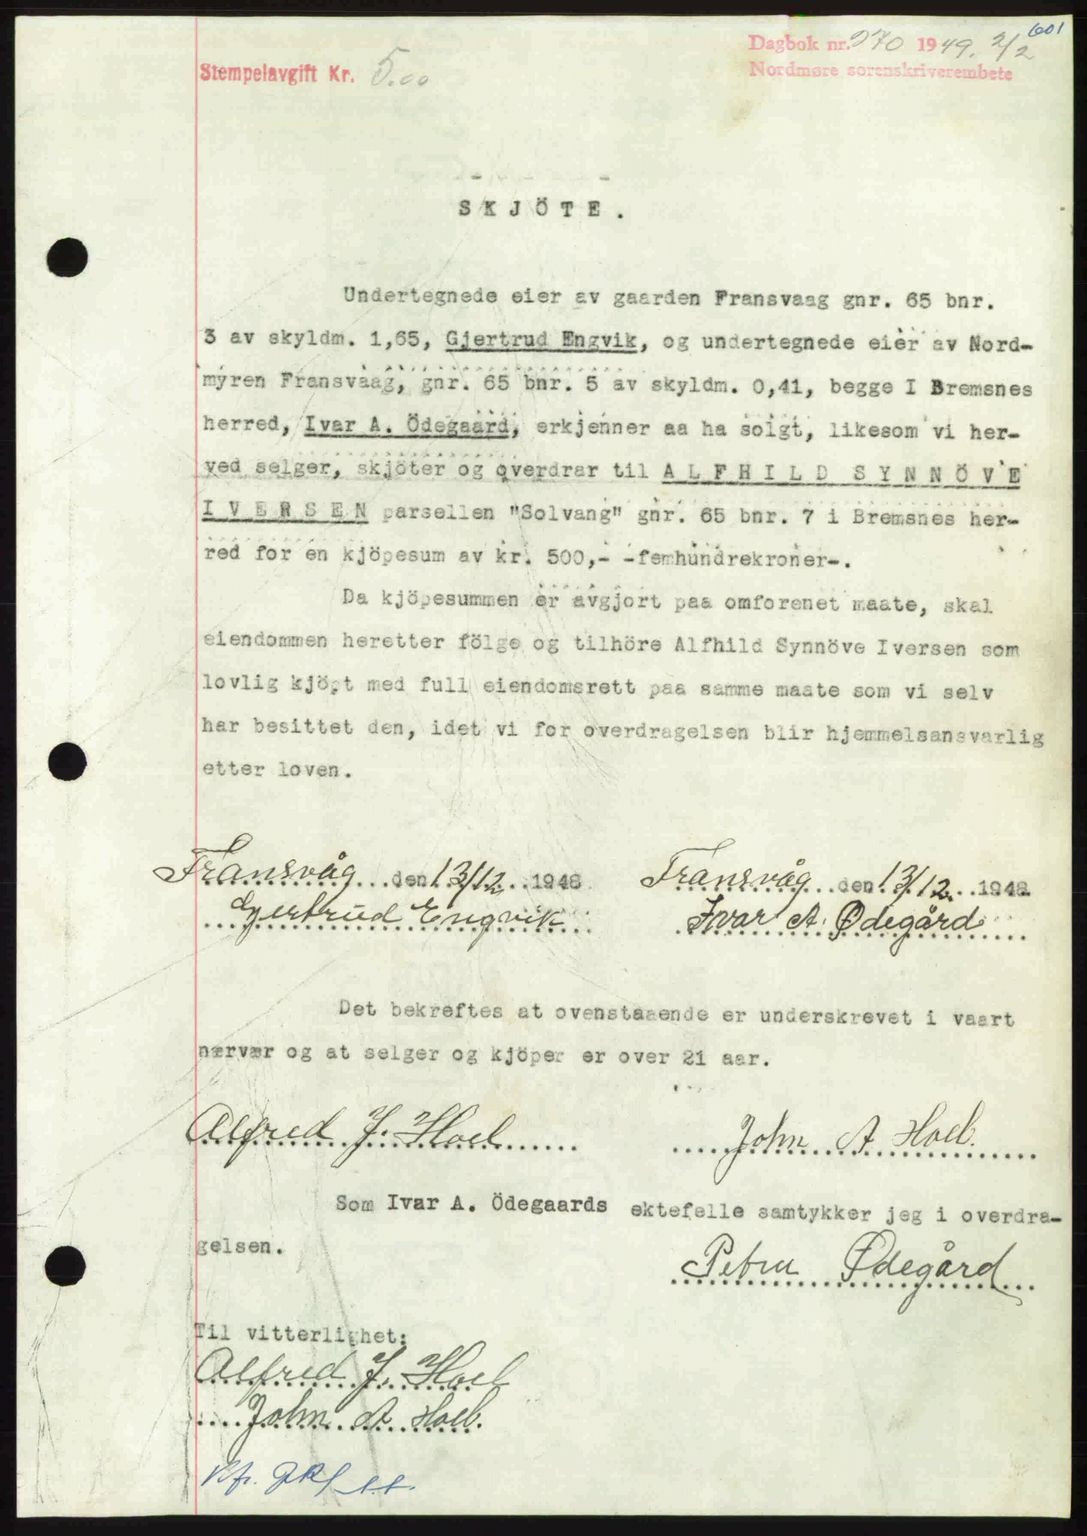 601
Dagbok nr. 270 1949. 2/2
Stempelavgift Kr. 5.00
Nordmøre sorenskriverembete
SKJÖTE.
Undertegnede eier av gaarden Fransvaag gnr. 65 bnr.
3 av skyldm. 1,65, Gjertrud Engvik, og undertegnede eier av Nord-
myren Fransvaag, gnr. 65 bnr. 5 av skyldm. 0,41, begge I Bremsnes
herred, Ivar A. Ödegaard, erkjenner aa ha solgt, likesom vi her-
ved selger, skjöter og overdrar til ALFHILD SYNNÖVE
IVERSEN parsellen "Solvang" gnr. 65 bnr. 7 i Bremsnes her-
red for en kjöpesum av kr. 500,- -femhundrekroner-.
Da kjöpesummen er avgjort paa omforenet maate, skal
eiendommen heretter fölge og tilhöre Alfhild Synnöve Iversen som
lovlig kjöpt med full eiendomsrett paa samme maate som vi selv
har besittet den, idet vi for overdragelsen blir hjemmelsansvarlig
etter loven.
Fransvåg den 13/12. 1948 Fransvåg den 13/12. 1948
Gjertrud Engvik Ivar A. Ødegård
Det bekreftes at ovenstaaende er underskrevet i vaart
nærvær og at selger og kjöper er over 21 aar.
Alfred J. Hoel John A Hoel.
Som Ivar A. Ödegaards ektefelle samtykker jeg i overdra-
gelsen.
Petra Ødegård
Til vitterlighet:
Alfred J. Hoel
John A Hoel.